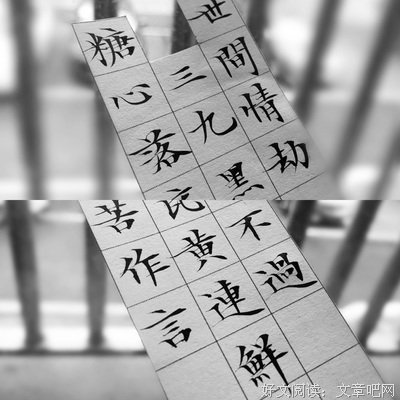 世間情劫不過
三九黑黃連鮮
糖心落苦作言
好文阅读：文章吧网